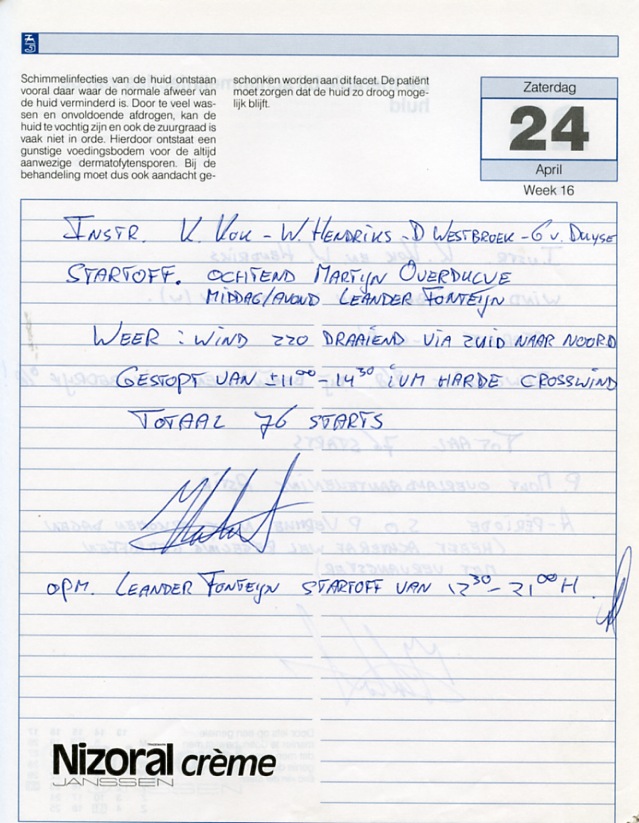 Schimmelinfecties van de huid ontstaan
vooral daar waar de normale afweer van
de huid verminderd is. Door te veel was-
sen en onvoldoende afdrogen, kan de
huid te vochtig zijn en ook de zuurgraad is
vaak niet in orde. Hierdoor ontstaat een
gunstige voedingsbodem voor de altijd
aanwezige dermatofytensporen. Bij de
behandeling moet dus ook aandacht ge-
schonken worden aan dit facet. De patiënt
moet zorgen dat de huid zo droog moge-
lijk blijft.
Zaterdag
24
April
Week 16
INSTR. K. KOK - W. HENDRIKS - D WESTBROEK - G v. DUYSE
STARTOFF. OCHTEND MARTYN OVERDUCVE
MIDDAG/AVOND LEANDER FONTEYN
WEER : WIND 220 DRAAIEND VIA ZUID NAAR NOORD
GESTOPT VAN ±11⁰⁰ - 14³⁰ IVM HARDE CROSSWIND
TOTAAL 76 STARTS
OPM. LEANDER FONTEYN STARTOFF VAN 12³⁰ - 21⁰⁰ H.
Nizoral crème
JANSSEN